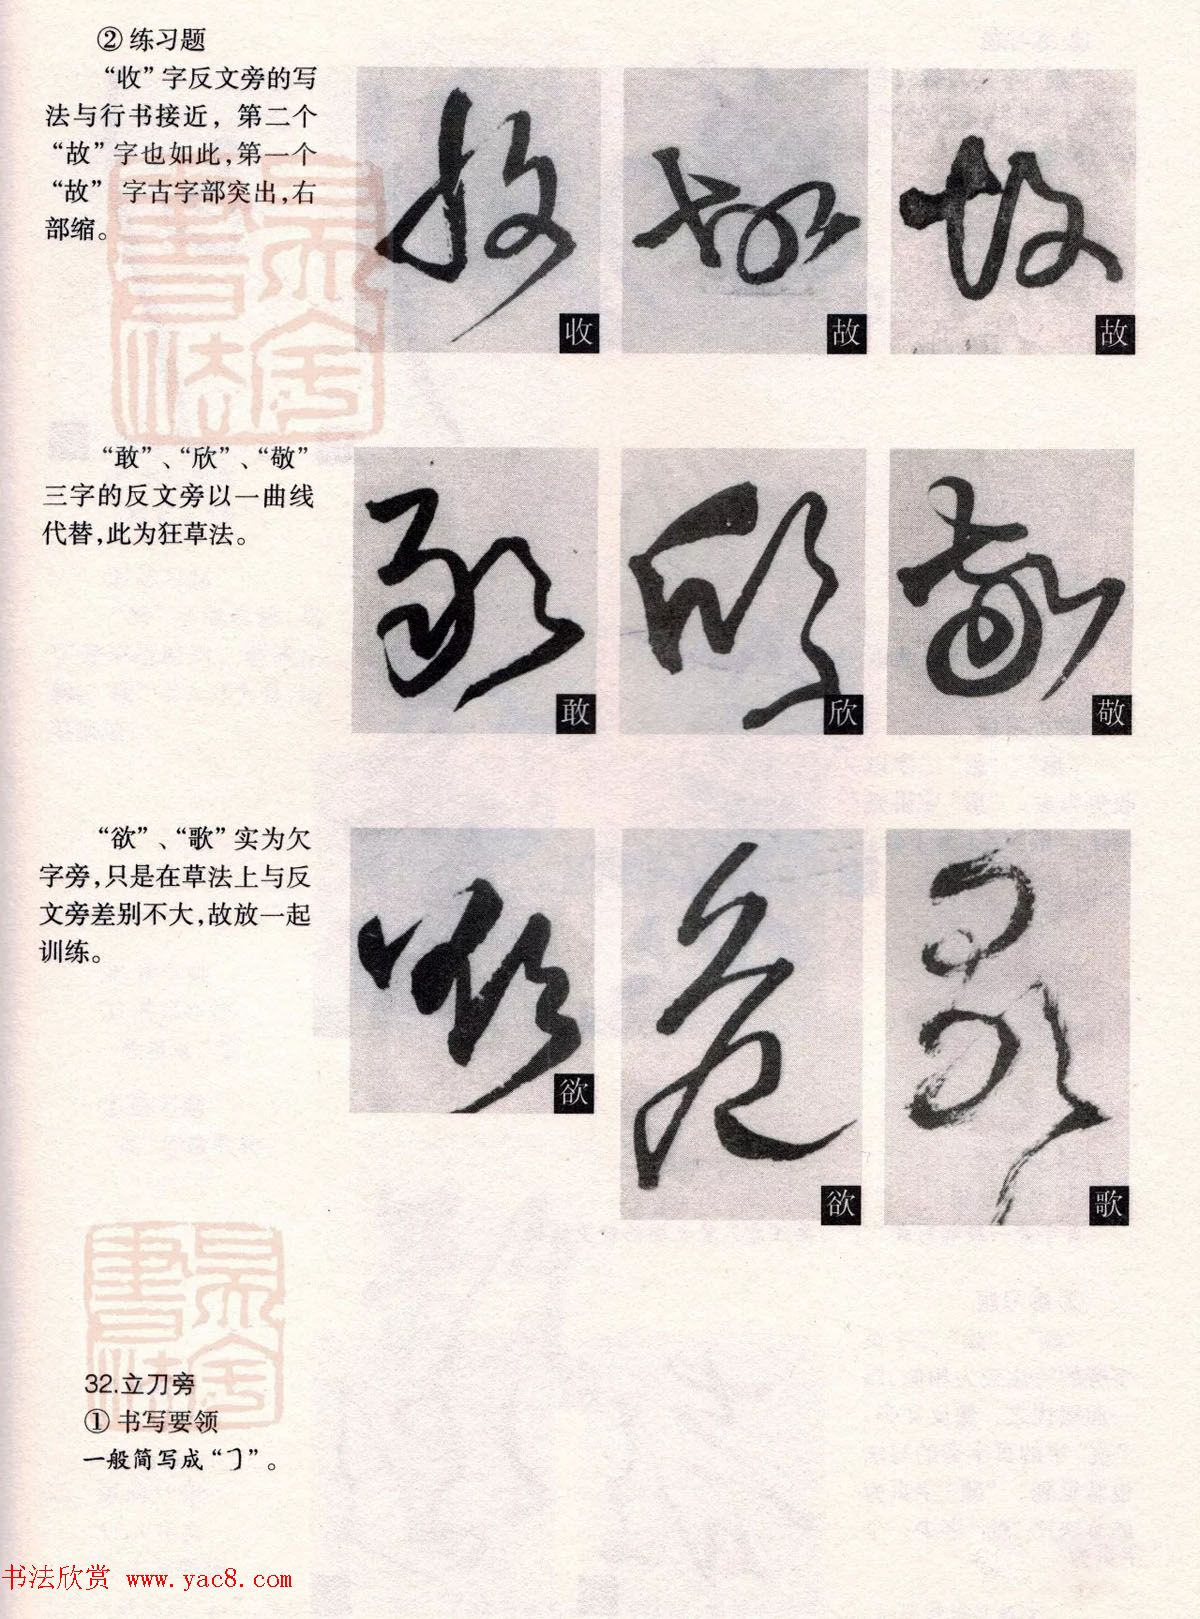 ② 练习题
“收”字反文旁的写
法与行书接近，第二个
“故”字也如此，第一个
“故”字古字部突出，右
部缩。
收
故
故
“敢”、“欣”、“敬”
三字的反文旁以一曲线
代替，此为狂草法。
敢
欣
敬
“欲”、“歌”实为欠
字旁，只是在草法上与反
文旁差别不大，故放一起
训练。
欲
欲
歌
32.立刀旁
① 书写要领
一般简写成“㇆”。
书法欣赏 www.yac8.com